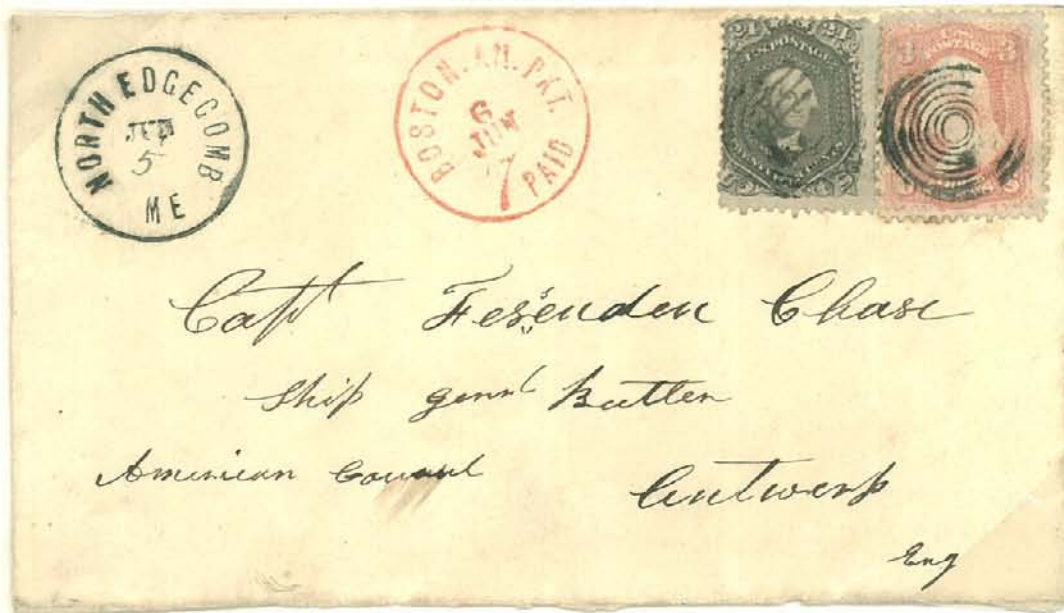 NORTH EDGECOMB
JUN
5
ME
BOSTON. AM. PKT.
6
JUN
7
PAID
24 24
U.S. POSTAGE
3 3
U.S.
POSTAGE
3 3
Capt Fessenden Chase
Ship gennl Butler
American Consul
Antwerp
Eng